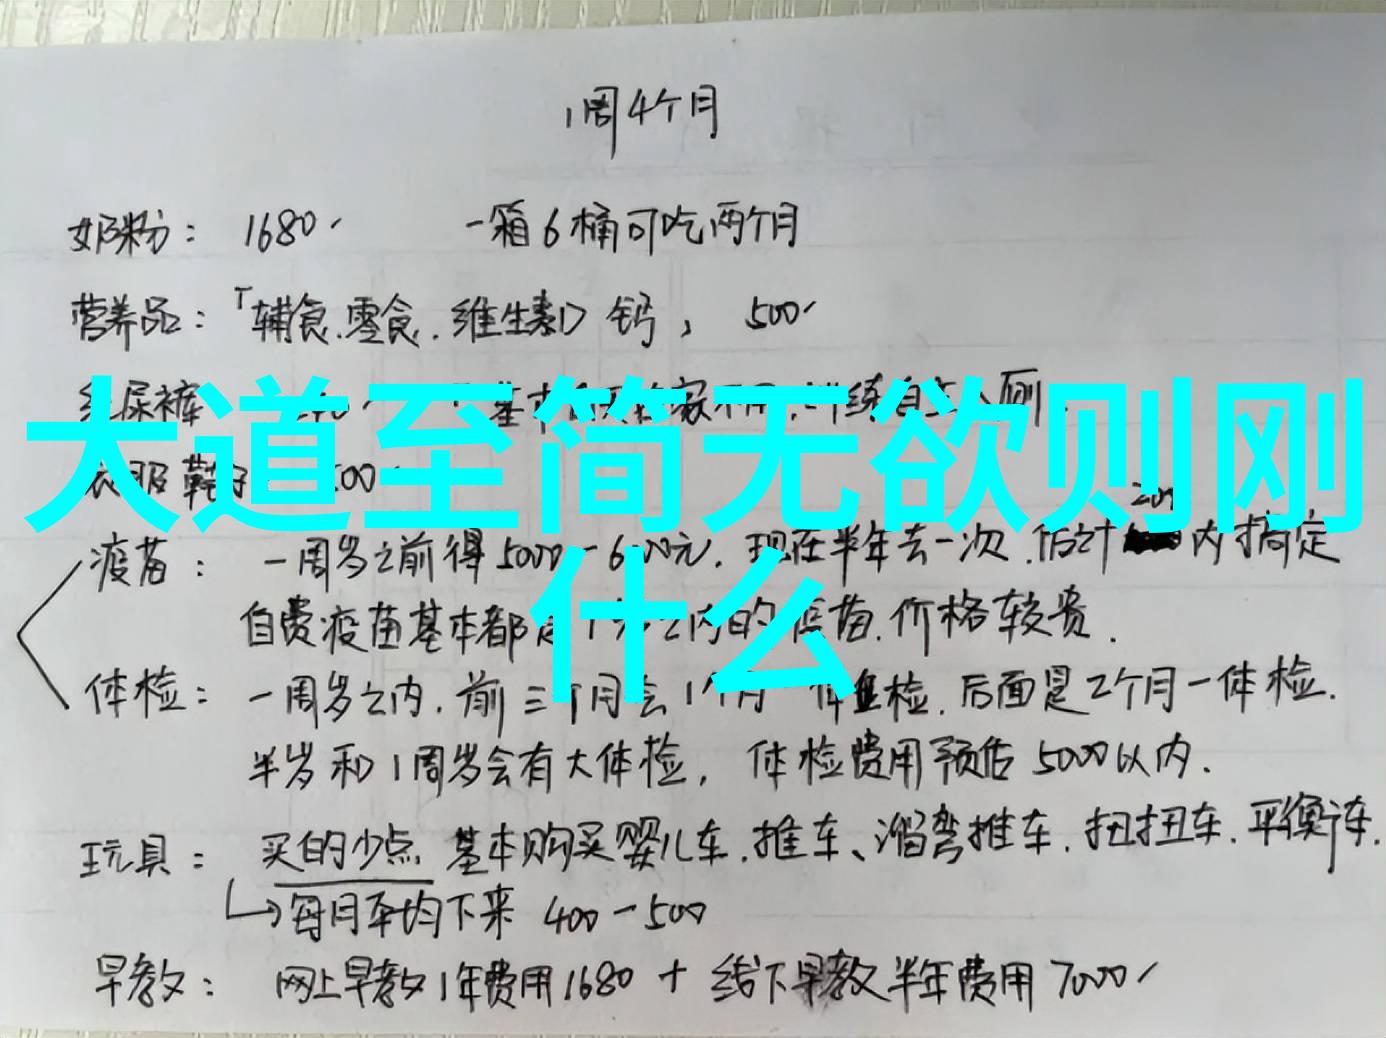 1周4个月
奶粉： 1680 一箱6桶可吃两个月
营养品：「辅食.零食.维生素D 钙, 500
大道至简无欲则刚
什么
疫苗： 一周岁之前得5000-6000元，现在半年去一次.估计 内搞定
自费疫苗基本都 内的疫苗.价格较贵.
体检： 一周岁之内.前三个月会1个月一体检.后面是2个月一体检.
半岁和1周岁会有大体检， 体检费用预估5000以内.
玩具： 买的少点 基本购买婴儿车.推车、溜弯推车.扭扭车.平衡车.
每月平均下来 400-500
早教： 网上早教1年费用1680 + 线下早教半年费用7000